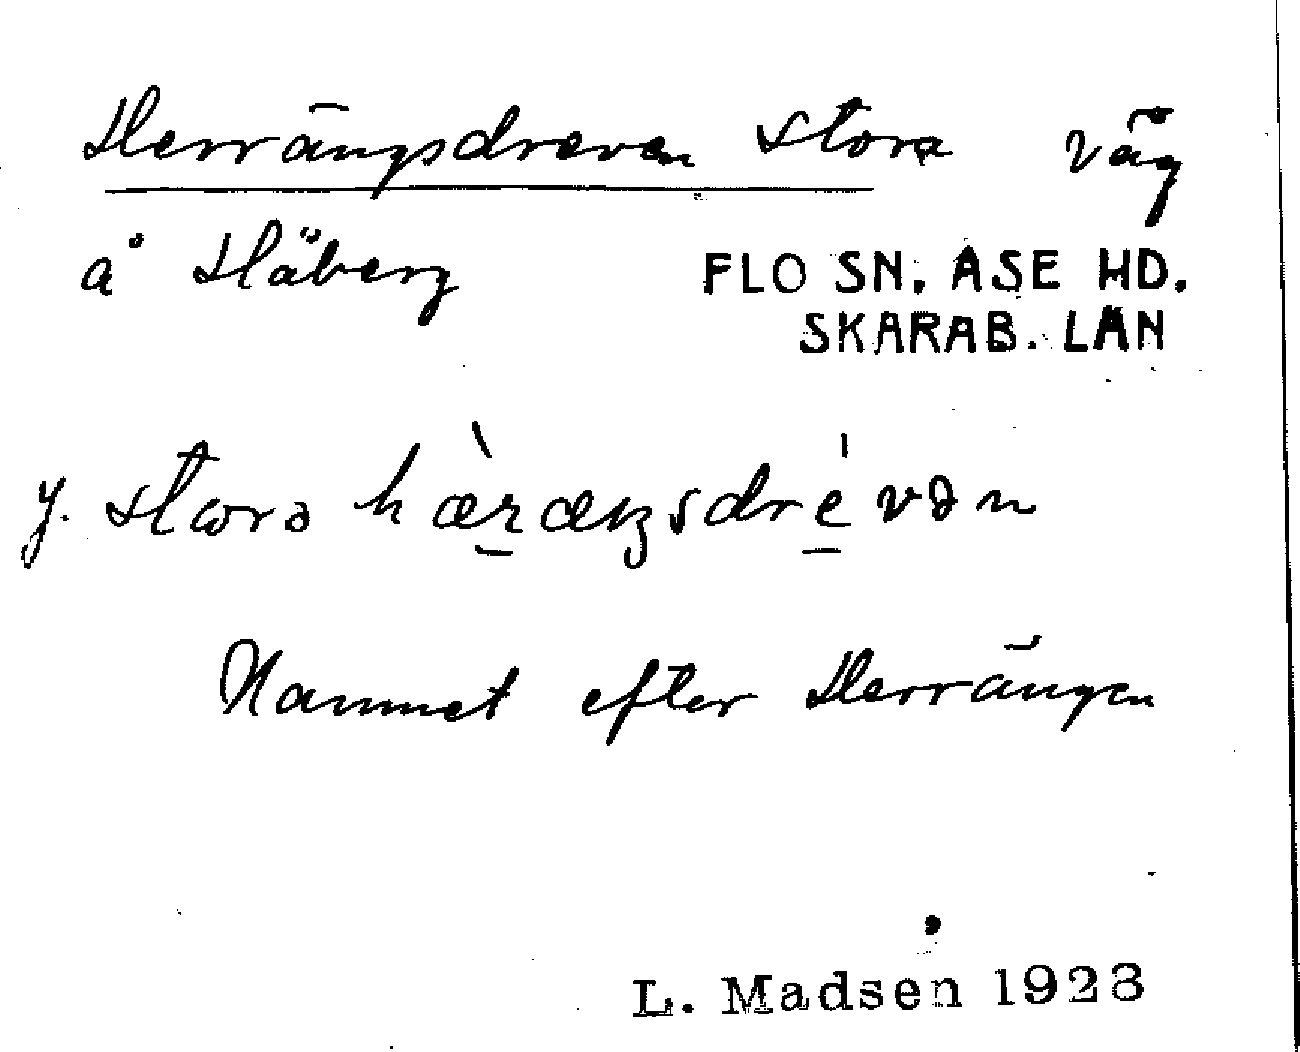 Herrängsdreven Stora väg
å Häberg
FLO SN, ÅSE HD.
SKARAB. LÄN
y. stora hæ̀rængsdrévən
Namnet efter Herrängen
L. Madsen 1923